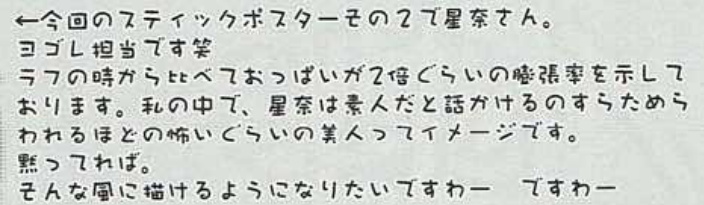 ←今回のスティックポスターその2で星奈さん。
ヨゴレ担当です笑
ラフの時から比べておっぱいが2倍ぐらいの膨張率を示して
おります。私の中で、星奈は素人だと話かけるのすらためら
われるほどの怖いぐらいの美人ってイメージです。
黙ってれば。
そんな風に描けるようになりたいですわー　ですわー